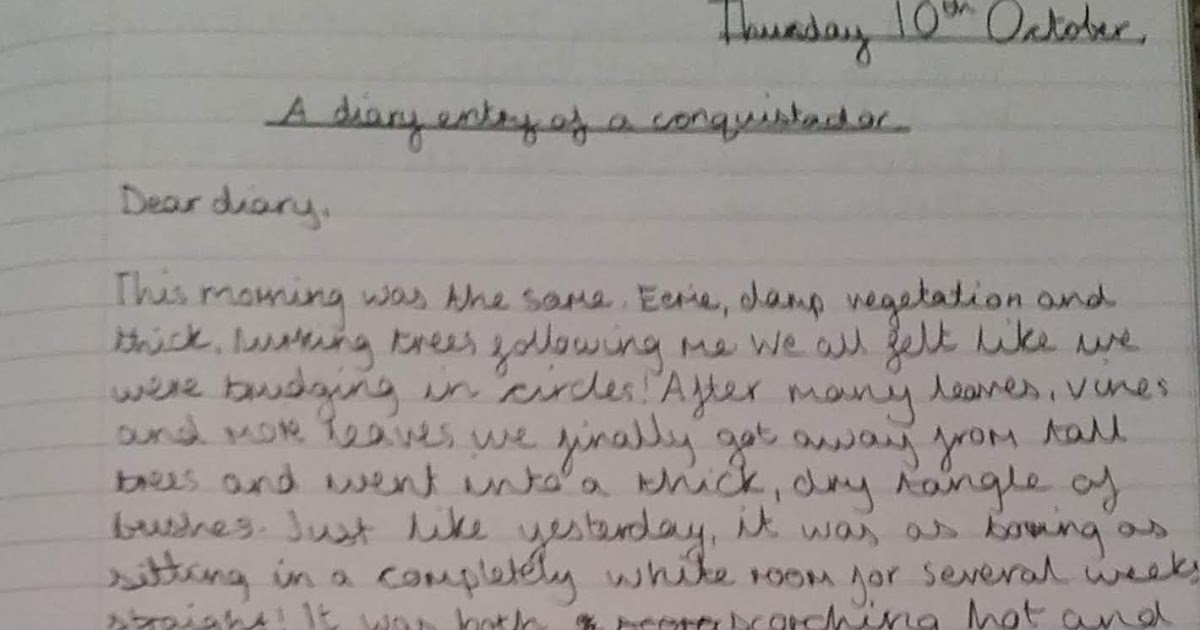 Thursday 10th October.
A diary entry of a conquistador
Dear diary,
This morning was the same. Eerie, damp vegetation and
thick, lurking trees following me. We all felt like we
were trudging in circles! After many leaves, vines
and more leaves, we finally got away from tall
trees and went into a thick, dry tangle of
bushes. Just like yesterday, it was as boring as
sitting in a completely white room for several weeks
straight! It was both scorching hot and